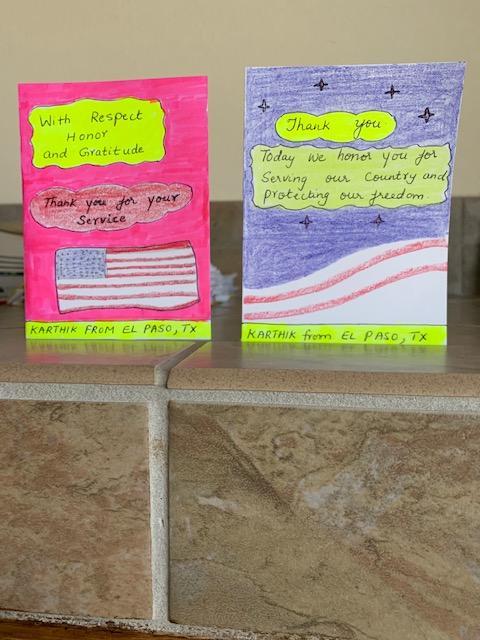 With Respect
Honor
and Gratitude
Thank you for your
Service
KARTHIK FROM EL PASO, TX
Thank you
Today we honor you for
Serving our Country and
Protecting our freedom.
KARTHIK from EL PASO, TX